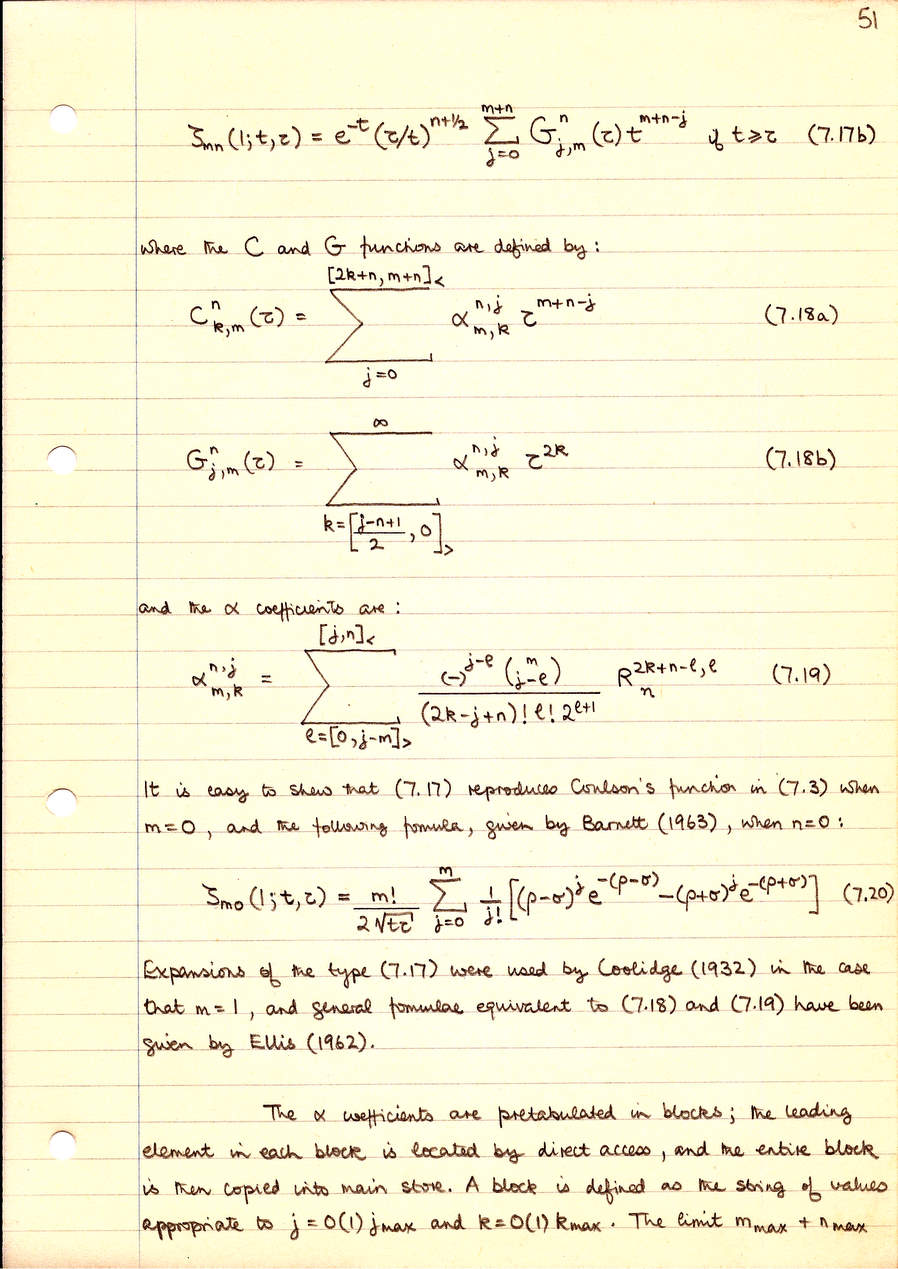 51
ζₘₙ(1; t, τ) = e^{-t} (τ/t)^{n+1/2} Σ_{j=0}^{m+n} G^{n}_{j,m}(τ) t^{m+n-j} if t ≥ τ (7.17b)
where the C and G functions are defined by :
C^{n}_{k,m}(τ) = Σ_{j=0}^{[2k+n, m+n]<} α^{n,j}_{m,k} τ^{m+n-j} (7.18a)
G^{n}_{j,m}(τ) = Σ_{k=[(j-n+1)/2, 0]>}^{∞} α^{n,j}_{m,k} τ^{2k} (7.18b)
and the α coefficients are :
α^{n,j}_{m,k} = Σ_{l=[0, j-m]>}^{[j,n]<} (-)^{j-l} (^{m}_{j-l}) / ((2k-j+n)! l! 2^{l+1}) R^{2k+n-l, l}_{n} (7.19)
It is easy to shew that (7.17) reproduces Coulson's function in (7.3) when
m=0, and the following formula, given by Barnett (1963), when n=0 :
ζₘ₀(1; t, τ) = m!/(2√(tτ)) Σ_{j=0}^{m} 1/j! [(ρ-σ)^{j} e^{-(ρ-σ)} - (ρ+σ)^{j} e^{-(ρ+σ)}] (7.20)
Expansions of the type (7.17) were used by Coolidge (1932) in the case
that m=1, and general formulae equivalent to (7.18) and (7.19) have been
given by Ellis (1962).
The α coefficients are pretabulated in blocks; the leading
element in each block is located by direct access, and the entire block
is then copied into main store. A block is defined as the string of values
appropriate to j = 0(1) jmax and k = 0(1) kmax. The limit mmax + nmax